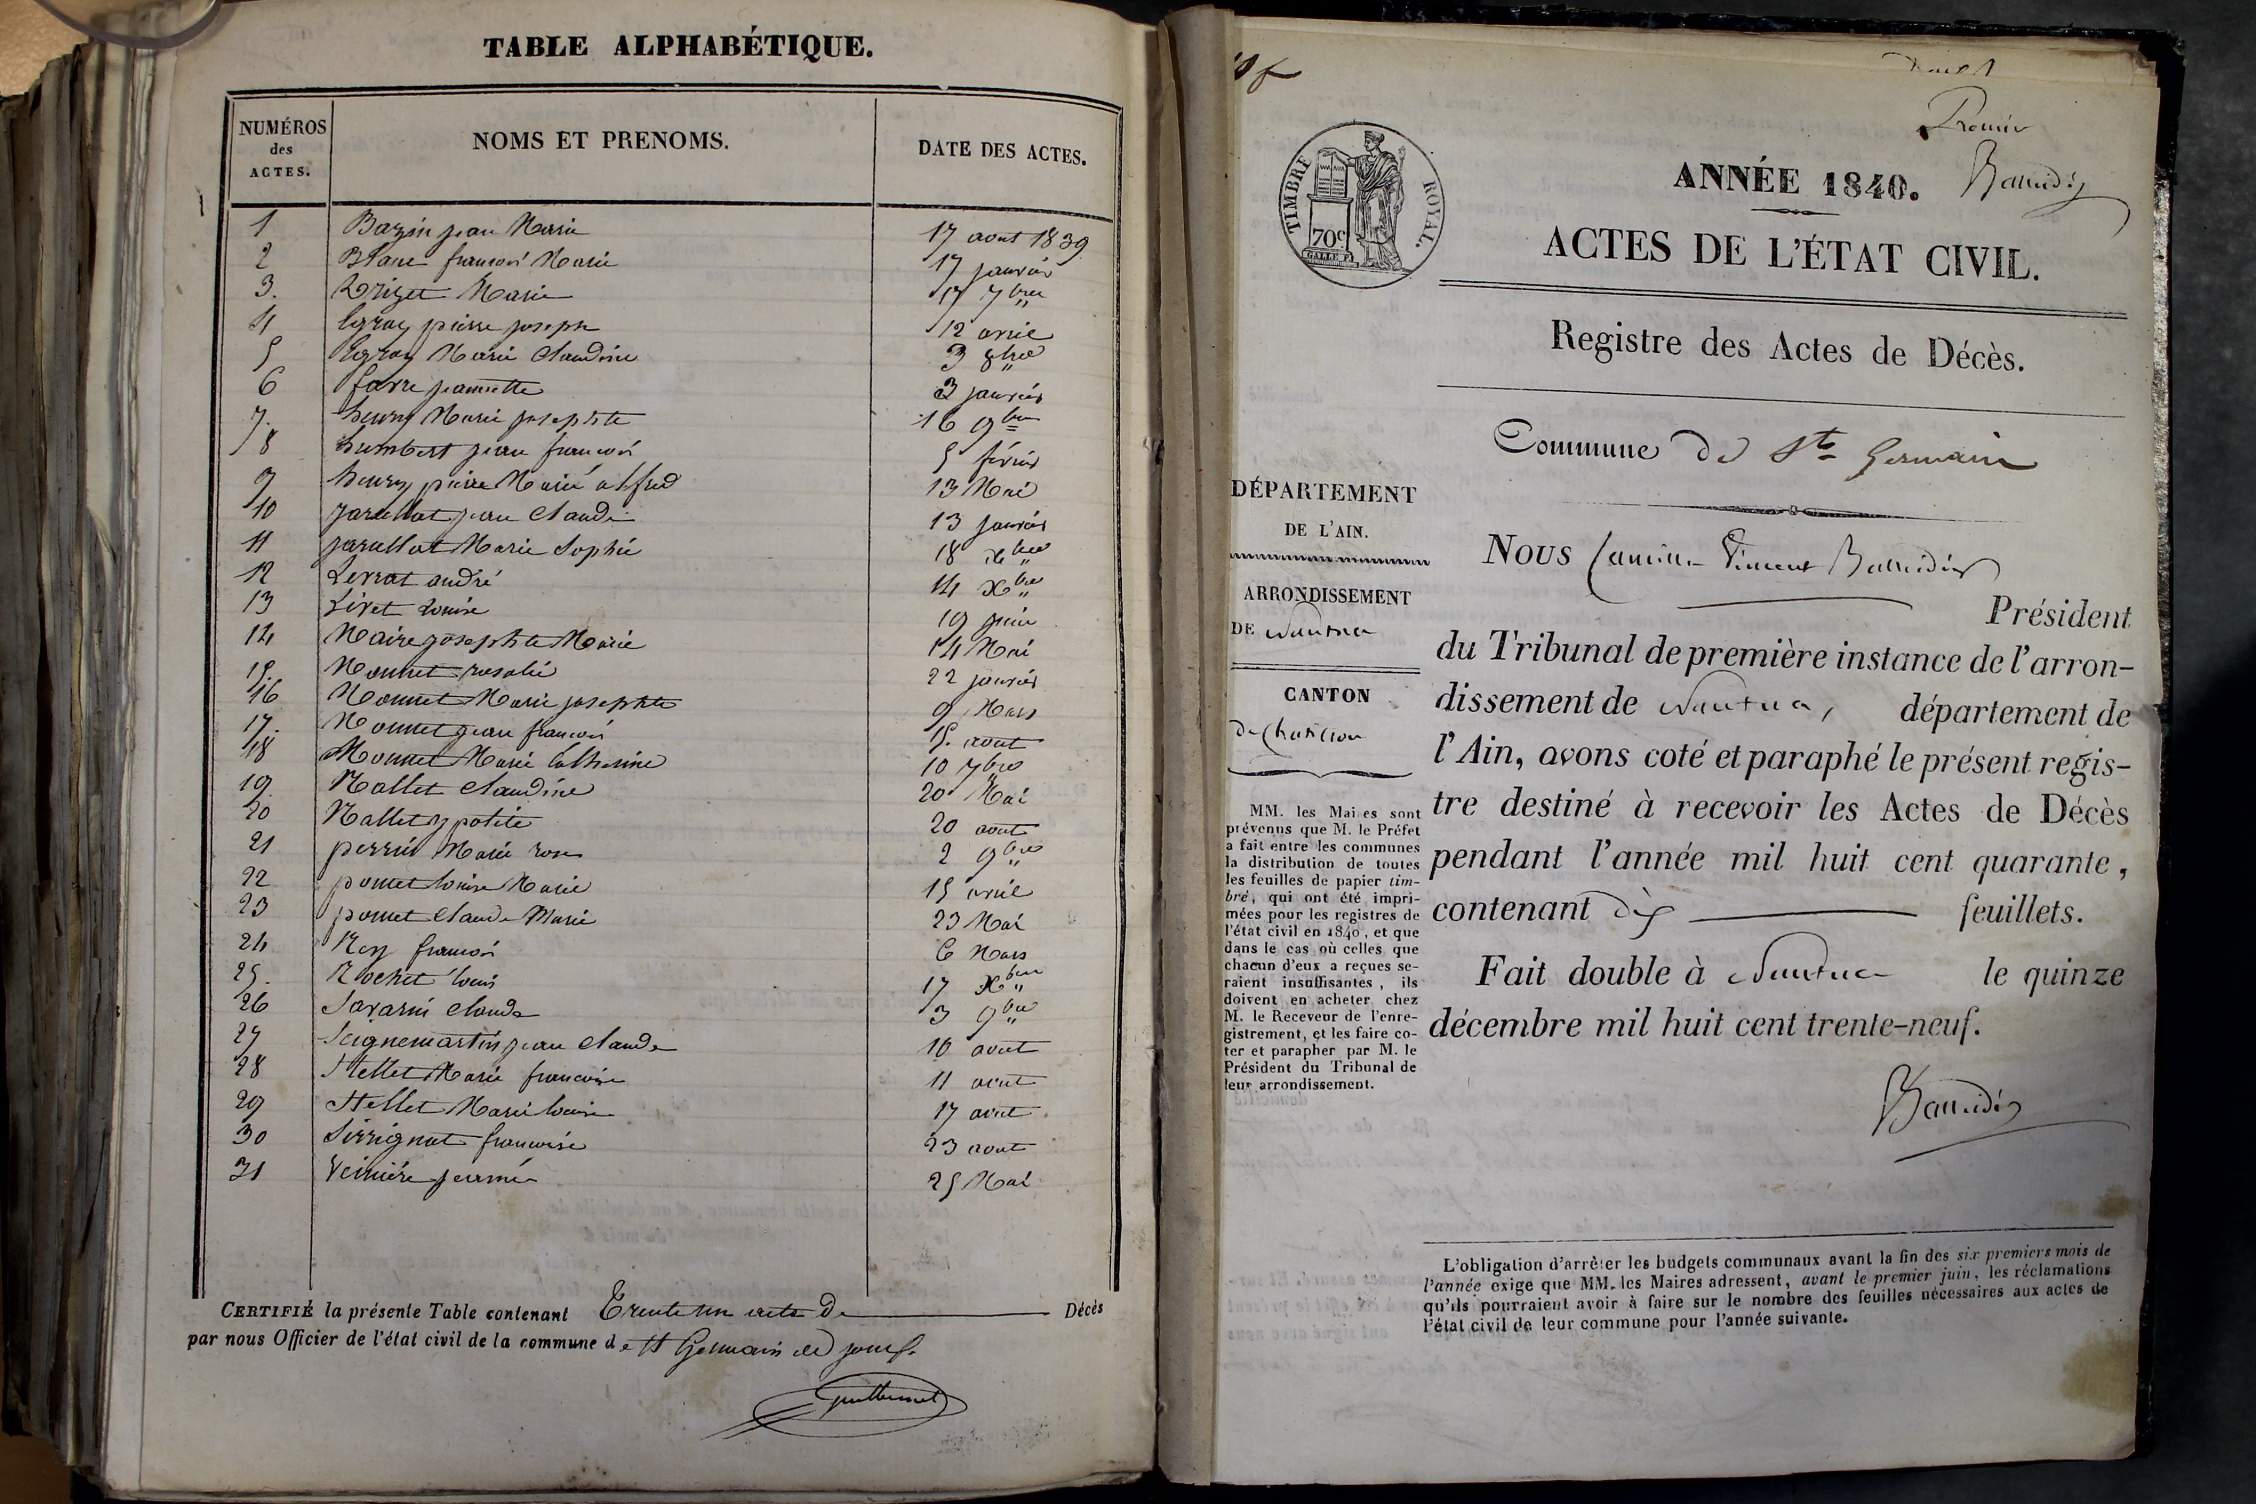 TABLE ALPHABÉTIQUE.
NUMÉROS des ACTES. NOMS ET PRENOMS. DATE DES ACTES.
1 Bazin jean Marie 17 aout 1839
2 Blanc francois Marie 17 janvier
3. Marie 17 7bre
4 Egraz pierre joseph 12 avril
5 Egraz Marie Claudine 3 8bre
6 favre jeannette 3 janvier
7. henry Marie josephte 16 9bre
8 humbert jean francois 5 février
9 henry pierre Marie alfred 13 Mai
10 jean Claude 13 janvier
11 Marie Sophie 18 xbre
12 Levrat andré 14 Xbre
13 Livet Louise 19 juin
14 Maire josephte Marie 14 Mai
15. Monnet rosalie 22 janvier
16 Monnet Marie josephte 9 Mars
17. Monnet jean francois 5. aout
18 Monnet Marie Catherine 10 7bre
19 Mallet Claudine 20 Mai
20 Mallet ypolite 20 aout
21 perrin Marie rose 2 9bre
22 ponset louise Marie 15 avril
23 ponset Claude Marie 23 Mai
24 Rey francois 6 Mars
25. Rochet louis 17 Xbre
26 Savarin Claude 3 9bre
27 Seignemartin jean Claude 10 aout
28 Stellet Marie francoise 11 aout
29 Stellet Marie louise 17 aout
30 Sirrignat francoise 23 aout
31 25 Mai
CERTIFIÉ la présente Table contenant Trente un acte de Décès
par nous Officier de l'état civil de la commune de St Germain de joux.
Guillermet
Premier
ANNÉE 1840.
TIMBRE ROYAL.
70c
ACTES DE L'ÉTAT CIVIL.
Registre des Actes de Décès.
Commune de St Germain
DÉPARTEMENT
DE L'AIN.
ARRONDISSEMENT
DE Nantua
CANTON
de Chatillon
MM. les Maires sont
prévenus que M. le Préfet
a fait entre les communes
la distribution de toutes
les feuilles de papier tim-
bré, qui ont été impri-
mées pour les registres de
l'état civil en 1840, et que
dans le cas où celles que
chacun d'eux a reçues se-
raient insuffisantes, ils
doivent en acheter chez
M. le Receveur de l'enre-
gistrement, et les faire co-
ter et parapher par M. le
Président du Tribunal de
leur arrondissement.
Nous Camille Vincent
Président
du Tribunal de première instance de l'arron-
dissement de Nantua, département de
l'Ain, avons coté et paraphé le présent regis-
tre destiné à recevoir les Actes de Décès
pendant l'année mil huit cent quarante,
contenant dix feuillets.
Fait double à Nantua le quinze
décembre mil huit cent trente-neuf.
L'obligation d'arrêter les budgets communaux avant la fin des six premiers mois de
l'année exige que MM. les Maires adressent, avant le premier juin, les réclamations
qu'ils pourraient avoir à faire sur le nombre des feuilles nécessaires aux actes de
l'état civil de leur commune pour l'année suivante.